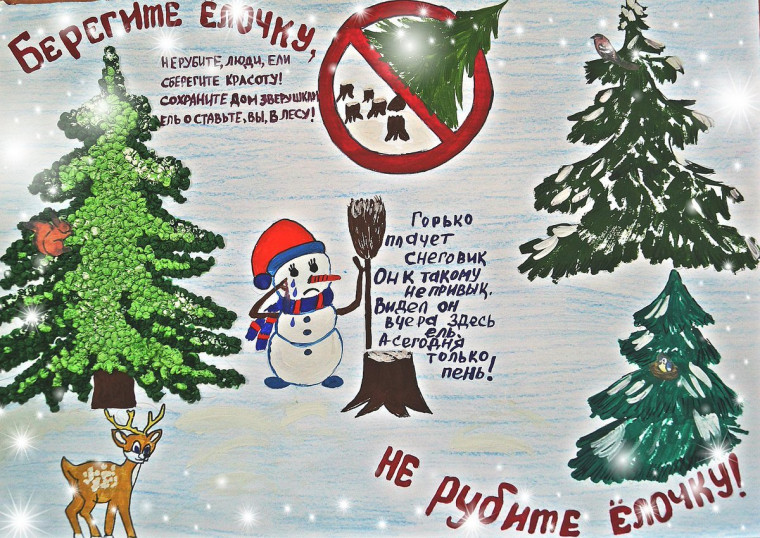 Берегите ёлочку,
Не рубите, люди, ели
Сберегите красоту!
Сохраните дом зверушкам
Ель оставьте, вы, в лесу!
Горько
плачет
снеговик
Он к такому
не привык.
Видел он
вчера здесь
ель,
А сегодня
только
пень!
Не рубите ёлочку!